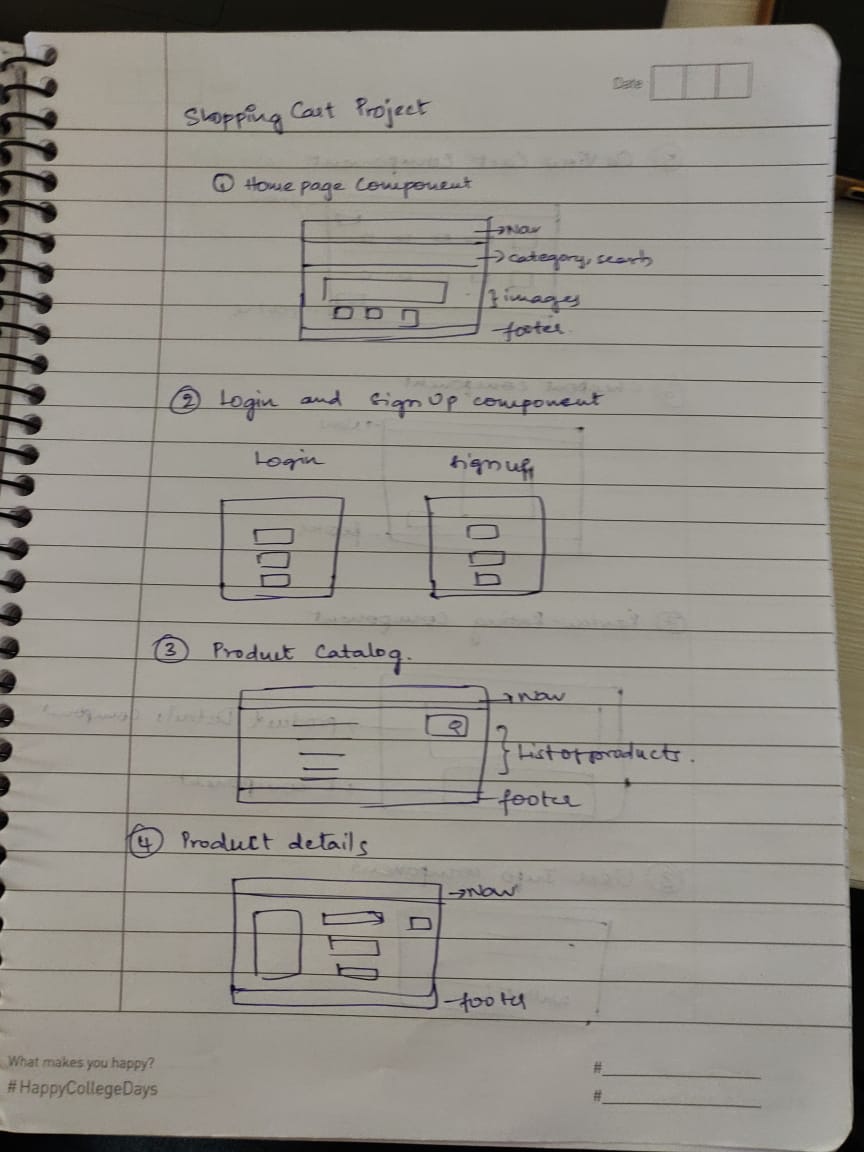 Date
Shopping Cart Project
① Home page Component
→ Nav
→ category, search
} images
- footer.
② Login and Sign Up component
Login Signup
③ Product Catalog.
→ nav
} List of products.
- footer
④ Product details
→ Nav
- footer
What makes you happy?
#HappyCollegeDays
#
#